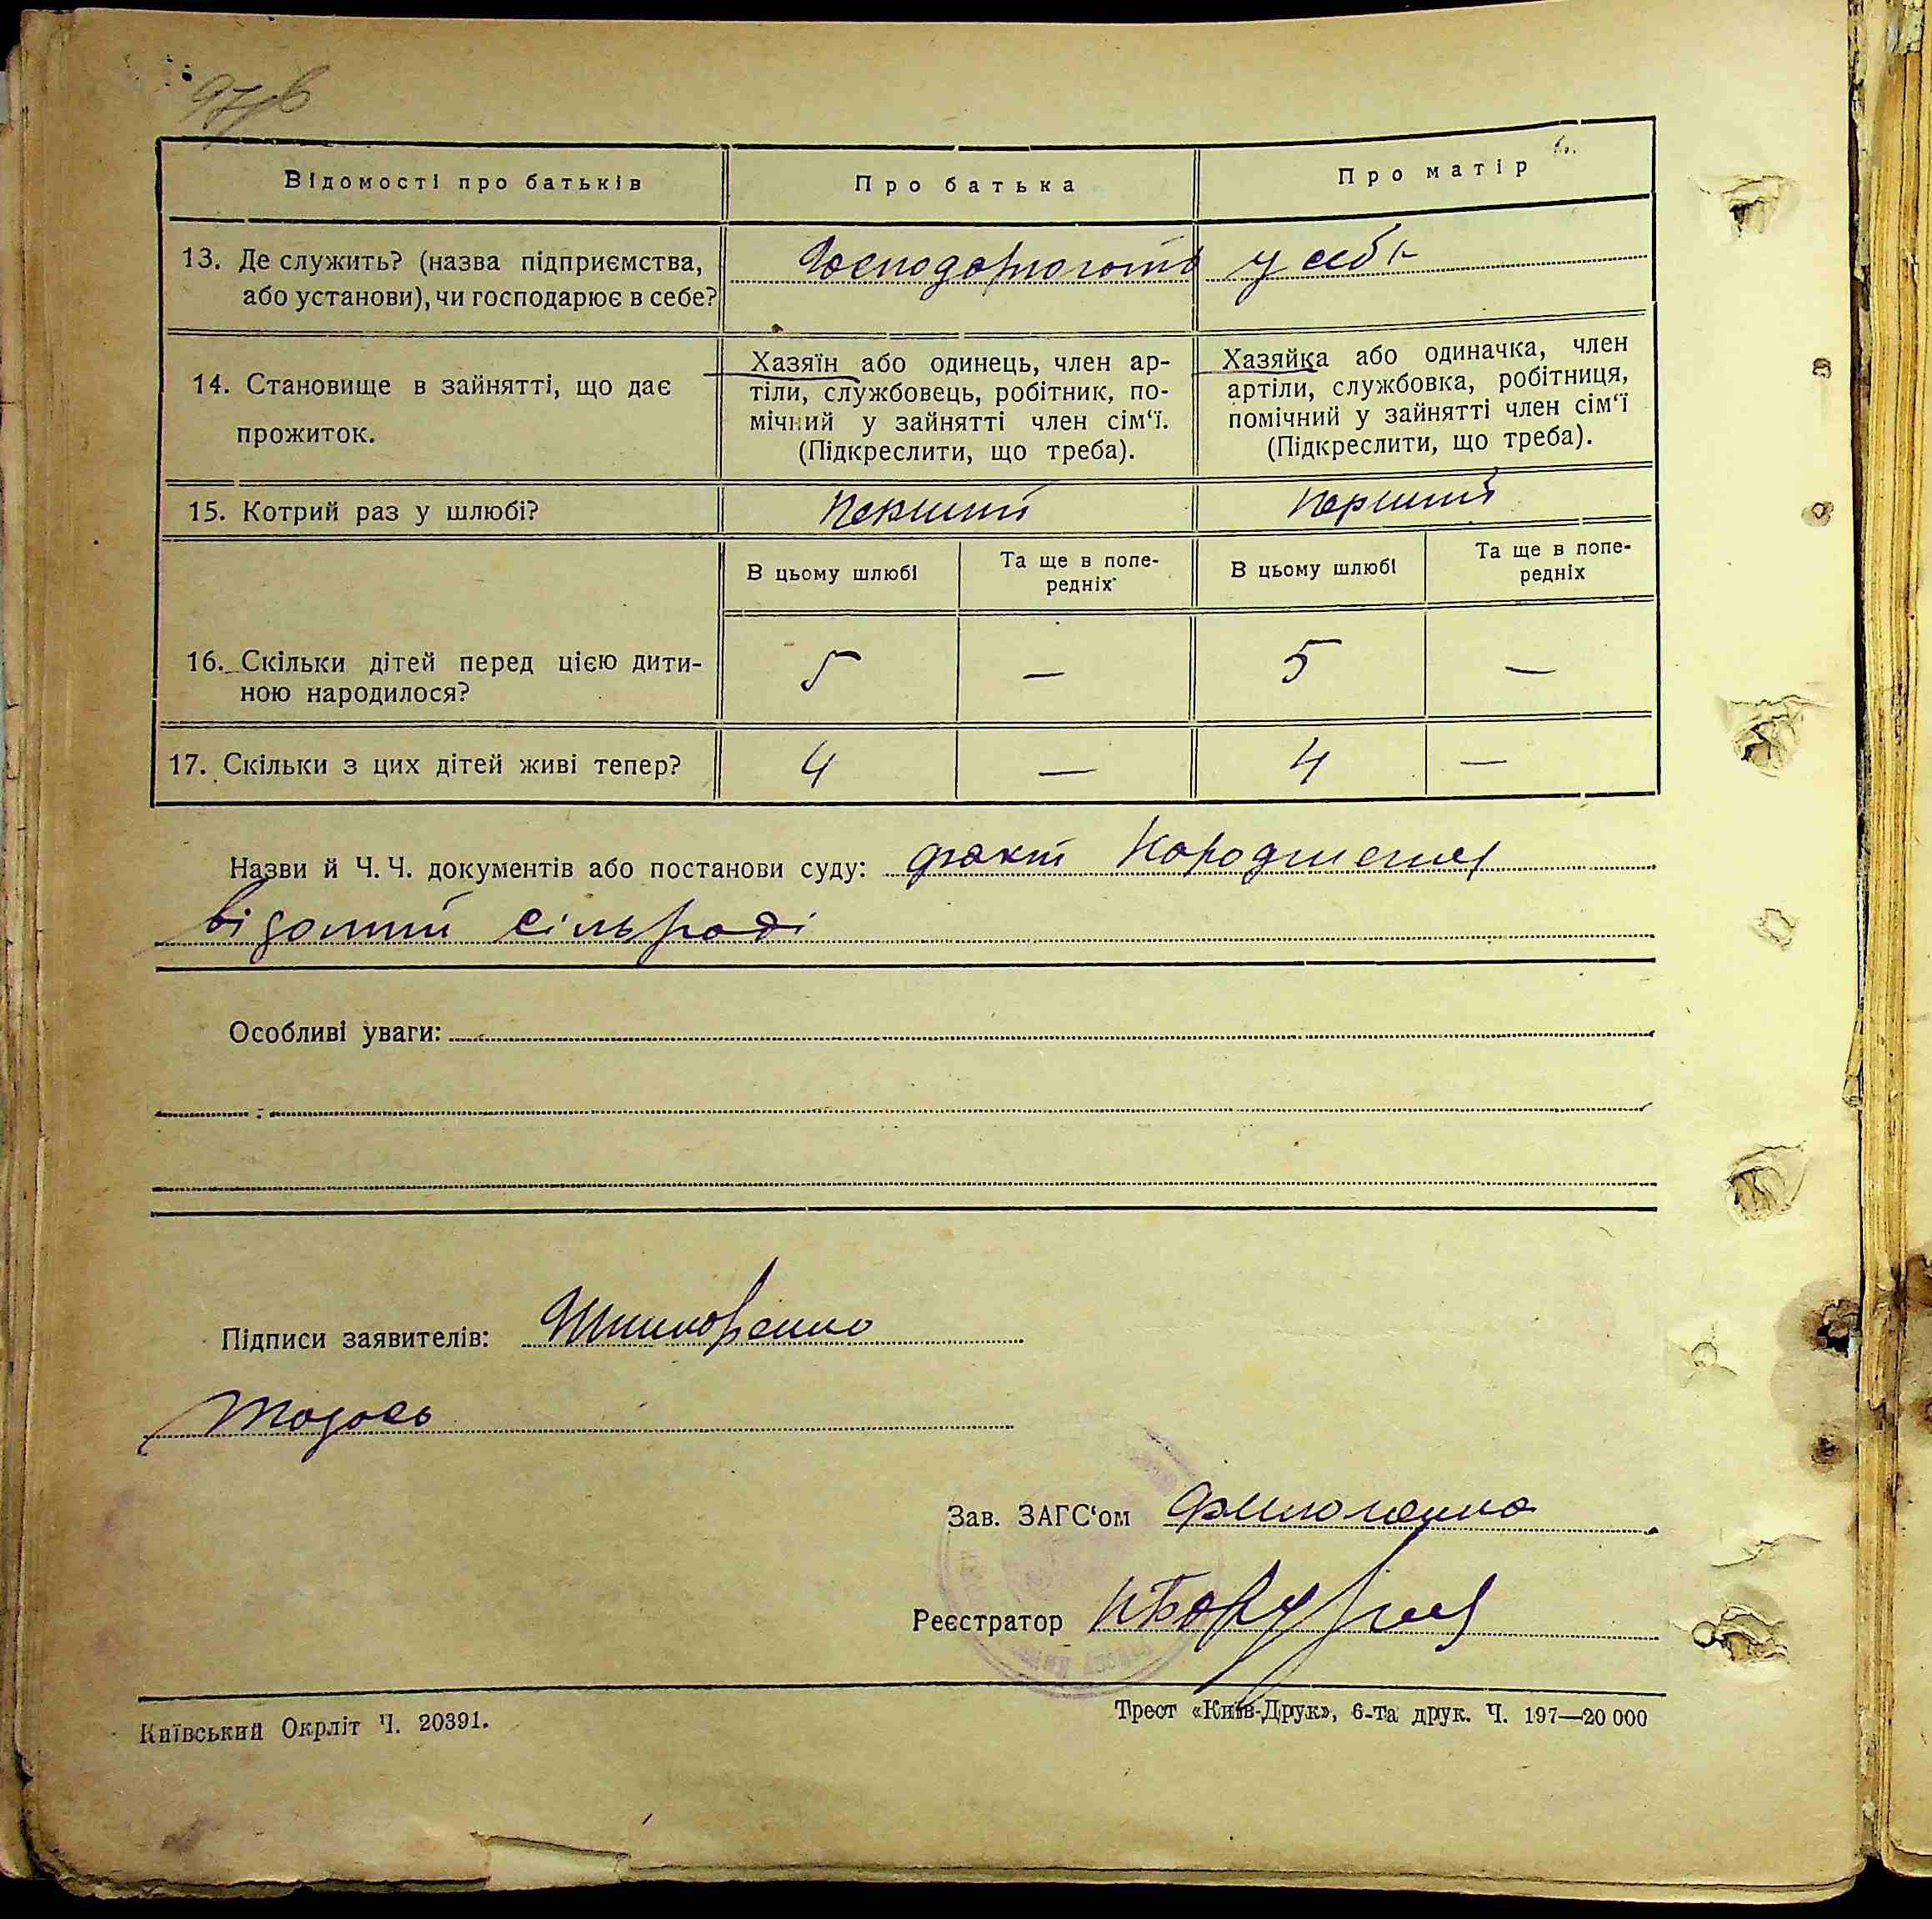 Відомості про батьків
Про батька
Про матір
13. Де служить? (назва підприємства, або установи), чи господарює в себе?
Господарюють у себе
14. Становище в зайнятті, що дає прожиток.
Хазяїн або одинець, член ар-
тіли, службовець, робітник, по-
мічний у зайнятті член сім‘ї.
(Підкреслити, що треба).
Хазяйка або одиначка, член
артіли, службовка, робітниця,
помічний у зайнятті член сім‘ї
(Підкреслити, що треба).
15. Котрий раз у шлюбі?
Перший
Перший
В цьому шлюбі
Та ще в попе-
редніх
В цьому шлюбі
Та ще в попе-
редніх
16. Скільки дітей перед цією дити-
ною народилося?
5 — 5 —
17. Скільки з цих дітей живі тепер?
4 — 4 —
Назви й Ч. Ч. документів або постанови суду: факт народження
відомий сільраді
Особливі уваги:
Підписи заявителів:
Тодось
Зав. ЗАГС‘ом
Реєстратор
Київський Окрліт Ч. 20391.
Трест «Київ-Друк», 6-та друк. Ч. 197—20 000